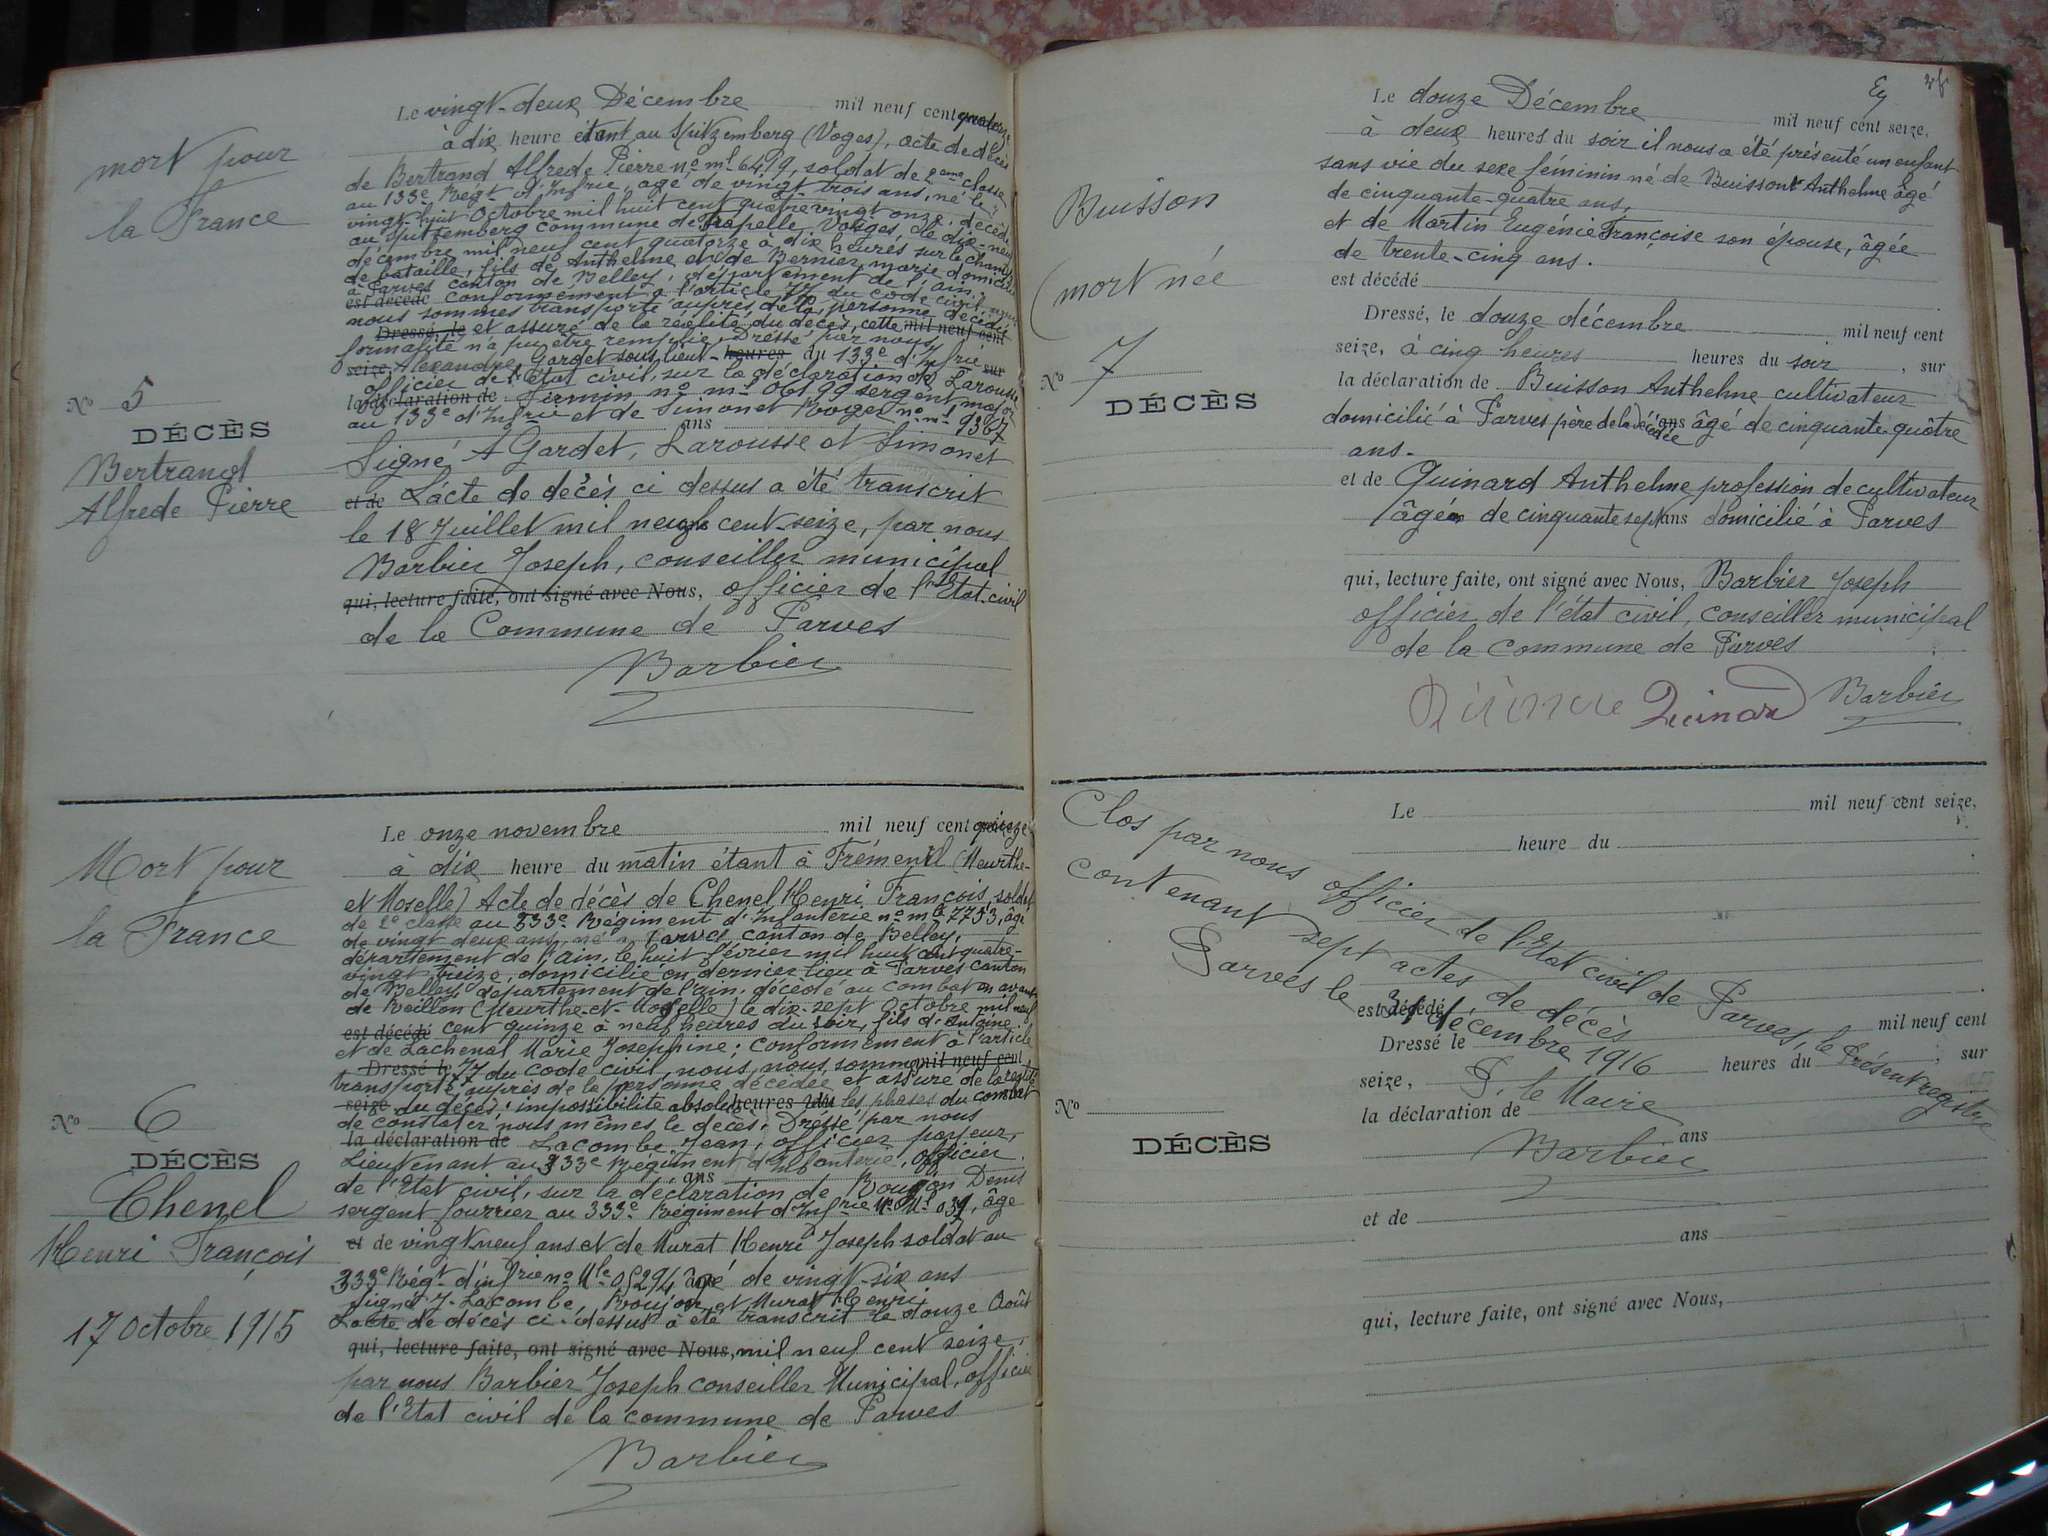 mort pour
la France
No 5
DÉCÈS
Bertrand
Alfrede Pierre
Le vingt-deux Décembre mil neuf cent quatorze
à dix heure étant au Spitzemberg (Voges), acte de décès
de Bertrand Alfrede Pierre no ml 6419, soldat de 2eme classe
au 133e Régt d'Infrie, âgé de vingt trois ans, né le
vingt huit Octobre mil huit cent quatre vingt onze, décédé
au Spitzemberg commune de Frapelle Vosges, le dix-neuf
décembre mil neuf cent quatorze à dix heures sur le champ
de bataille, fils de Anthelme et de Bernier marie domiciliés
à Parves canton de Belley, département de l'ain.
est décédé conformément à l'article 77 du code civil, nous
nous sommes transporté auprès de la personne décédée
Dressé, le et assuré de la réalité du décès, cette mil neuf cent
formalité n'a pu être remplie. Dressé par nous
seize, Alexandre Gardet sous lieut- heures du 133e d'Infrie sur
officier de l'Etat civil, sur la déclaration de Larousse
la déclaration de Firmin no ml 06199 sergent major
au 133e d'Infrie et de Simonet Roger no ml 9367
ans
Signé A Gardet, Larousse et Simonet
et de L'acte de décès ci dessus a été transcrit
le 18 Juillet mil neuf cent-seize, par nous
Barbier Joseph, conseiller municipal
qui, lecture faite, ont signé avec Nous, officier de l'Etat-civil
de la Commune de Parves
Barbier
Mort pour
la France
No 6
DÉCÈS
Chenel
Henri François
17 Octobre 1915
Le onze novembre mil neuf cent quinze
à dix heure du matin étant à Fréménil (Meurthe-
et Moselle) Acte de décès de Chenel Henri François, soldat
de 2e classe au 333e Régiment d'Infanterie no ml 7753, âgé
de vingt deux ans, né à Parves canton de Belley,
département de l'Ain, le huit février mil huit cent quatre-
vingt treize, domicilié en dernier lieu à Parves canton
de Belley, département de l'ain, décédé au combat en avant
de Reillon (Meurthe-et-Moselle) le dix-sept Octobre mil neuf
est décédé cent quinze à neuf heures du soir, fils d'Antoine
et de Lachenal Marie Josephine; conformément à l'article
Dressé le 77 du code civil, nous nous sommes mil neuf cent
transporté auprès de la personne décédée et assuré de la réalité
seize du décès; impossibilité absolue heures du les phases du combat
de constater nous mêmes le décès; Dressé par nous
la déclaration de Lacombe Jean, officier payeur,
Lieutenant au 333e Régiment d'Infanterie, officier
ans
de l'Etat civil, sur la déclaration de Boujon Denis
sergent fourrier au 333e Régiment d'Infrie No Ml 039, âgé
et de vingt neuf ans et de Murat Henri Joseph soldat au
333e Régt d'infrie no Mle 05294 âgé de vingt-six ans
Signé J. Lacombe, Boujon et Murat Henri
L'acte de décès ci-dessus a été transcrit le douze Août
qui, lecture faite, ont signé avec Nous, mil neuf cent seize,
par nous Barbier Joseph conseiller Municipal, officier
de l'Etat civil de la commune de Parves
Barbier
Buisson
(mort née
No 7
DÉCÈS
Le douze Décembre mil neuf cent seize,
à deux heures du soir il nous a été présenté un enfant
sans vie du sexe féminin né de Buisson Anthelme âgé
de cinquante-quatre ans,
et de Martin Eugénie Françoise son épouse, âgée
de trente-cinq ans.
est décédé
Dressé, le douze décembre mil neuf cent
seize, à cinq heures heures du soir, sur
la déclaration de Buisson Anthelme cultivateur
domicilié à Parves père de la décédée ans âgé de cinquante quâtre
ans.
et de Quinard Anthelme profession de cultivateur
âgé de cinquante sept ans domicilié à Parves
qui, lecture faite, ont signé avec Nous, Barbier Joseph
officier de l'état civil, conseiller municipal
de la commune de Parves
Quinard Barbier
Clos par nous officier de l'Etat civil de Parves, le Présent registre
contenant sept actes de décès
Parves le 31 décembre 1916
P. le Maire
Barbier
No
DÉCÈS
Le mil neuf cent seize,
heure du
est décédé
Dressé le mil neuf cent
seize, heures du , sur
la déclaration de
ans
et de
ans
qui, lecture faite, ont signé avec Nous,